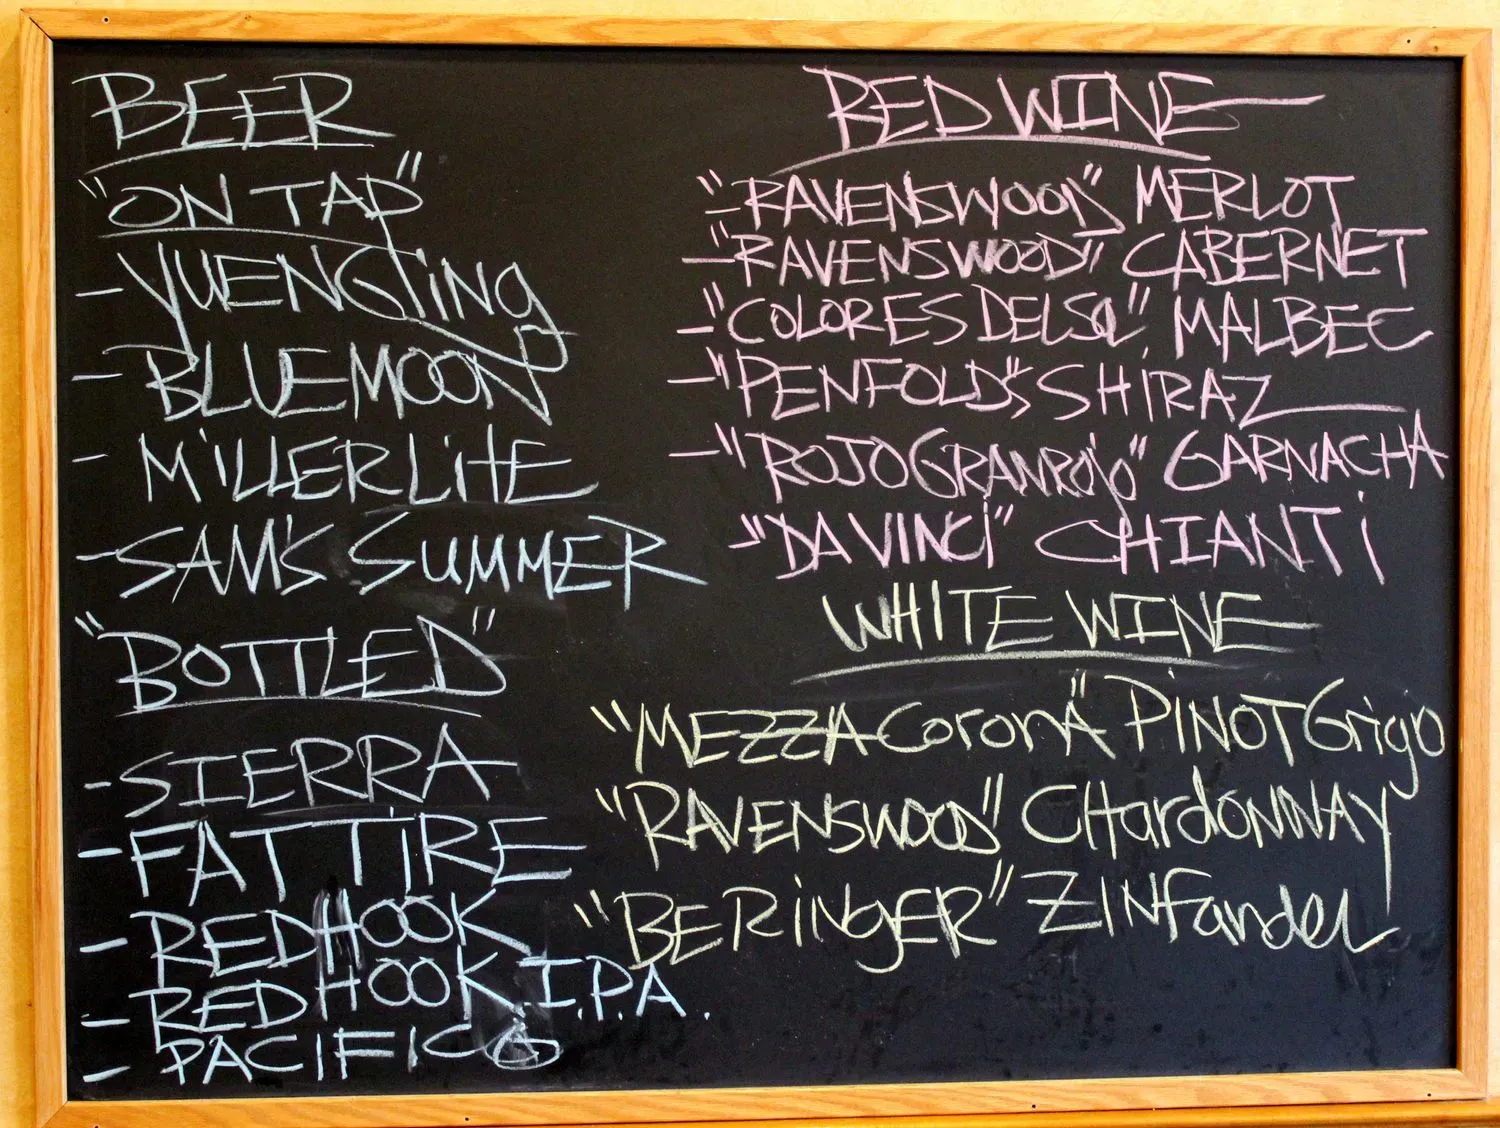 BEER
"ON TAP"
- YUENGLiNg
- BLUEMOON
- MiLLER LiTE
- SAM'S SUMMER
"BOTTLED"
- SIERRA
- FAT TiRE
- REDHOOK
- RED HOOK I.P.A.
- PACIFICO
RED WINE
- "RAVENSWOOD" MERLOT
- "RAVENSWOOD" CABERNET
- "COLORES DELSOL" MALBEC
- "PENFOLD'S" SHiRAZ
- "ROJO GRANROjO" GARNACHA
- "DA VINCi" CHIANTi
WHITE WINE
"MEZZACoronA" PiNOT Grigo
"RAVENSWOOD" CHardoNNAY
"BERiNgER" ZINfandeL